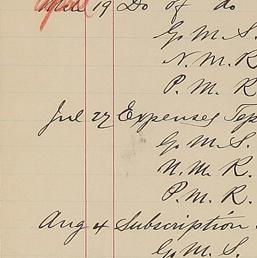 April 19 Do of do
G. M. S.
N. M. R
P. M. R
Jul 27 Expenses Top
G. M. S.
N. M. R.
P. M. R.
Aug 4 Subscription
G. M. S.